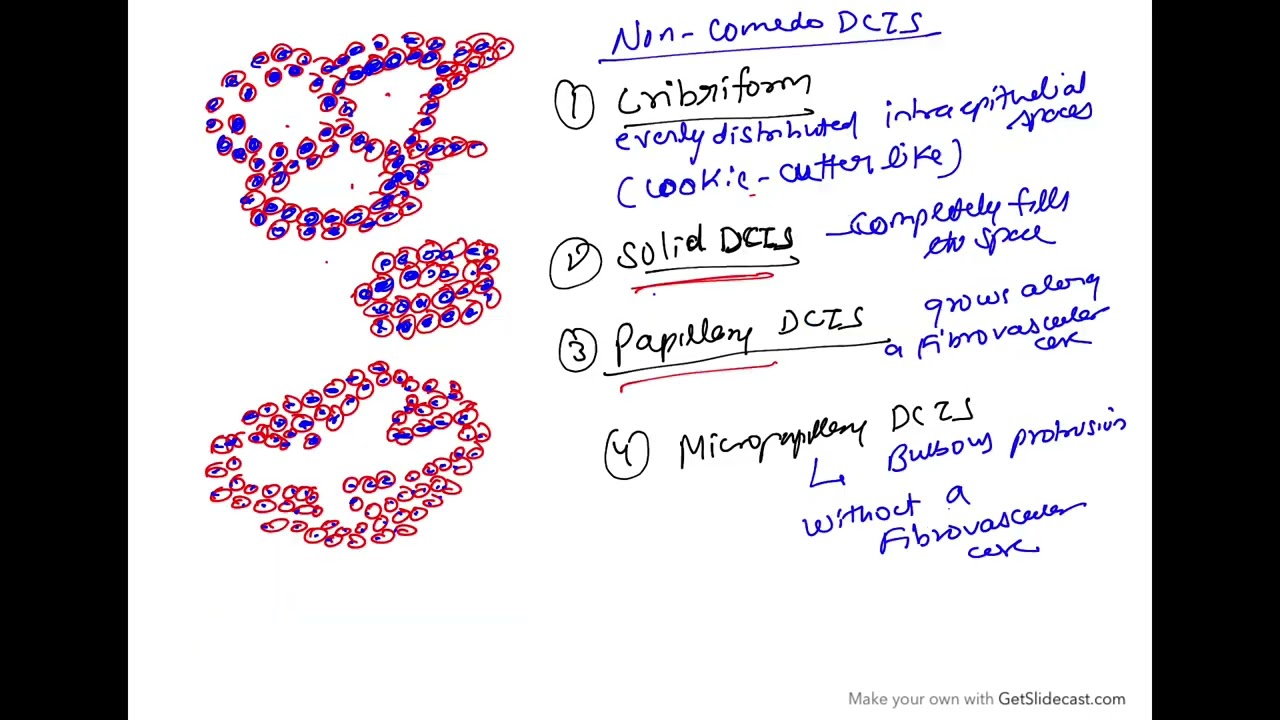 Non-Comedo DCIS
① Cribriform
evenly distributed intraepithelial
spaces
(cookie-cutter like)
② Solid DCIS - Completely fills
the space
③ Papillary DCIS grows along
a Fibrovascular
core
④ Micropapillary DCIS
↳ Bulbous protrusion
without a
Fibrovascular
core
Make your own with GetSlidecast.com